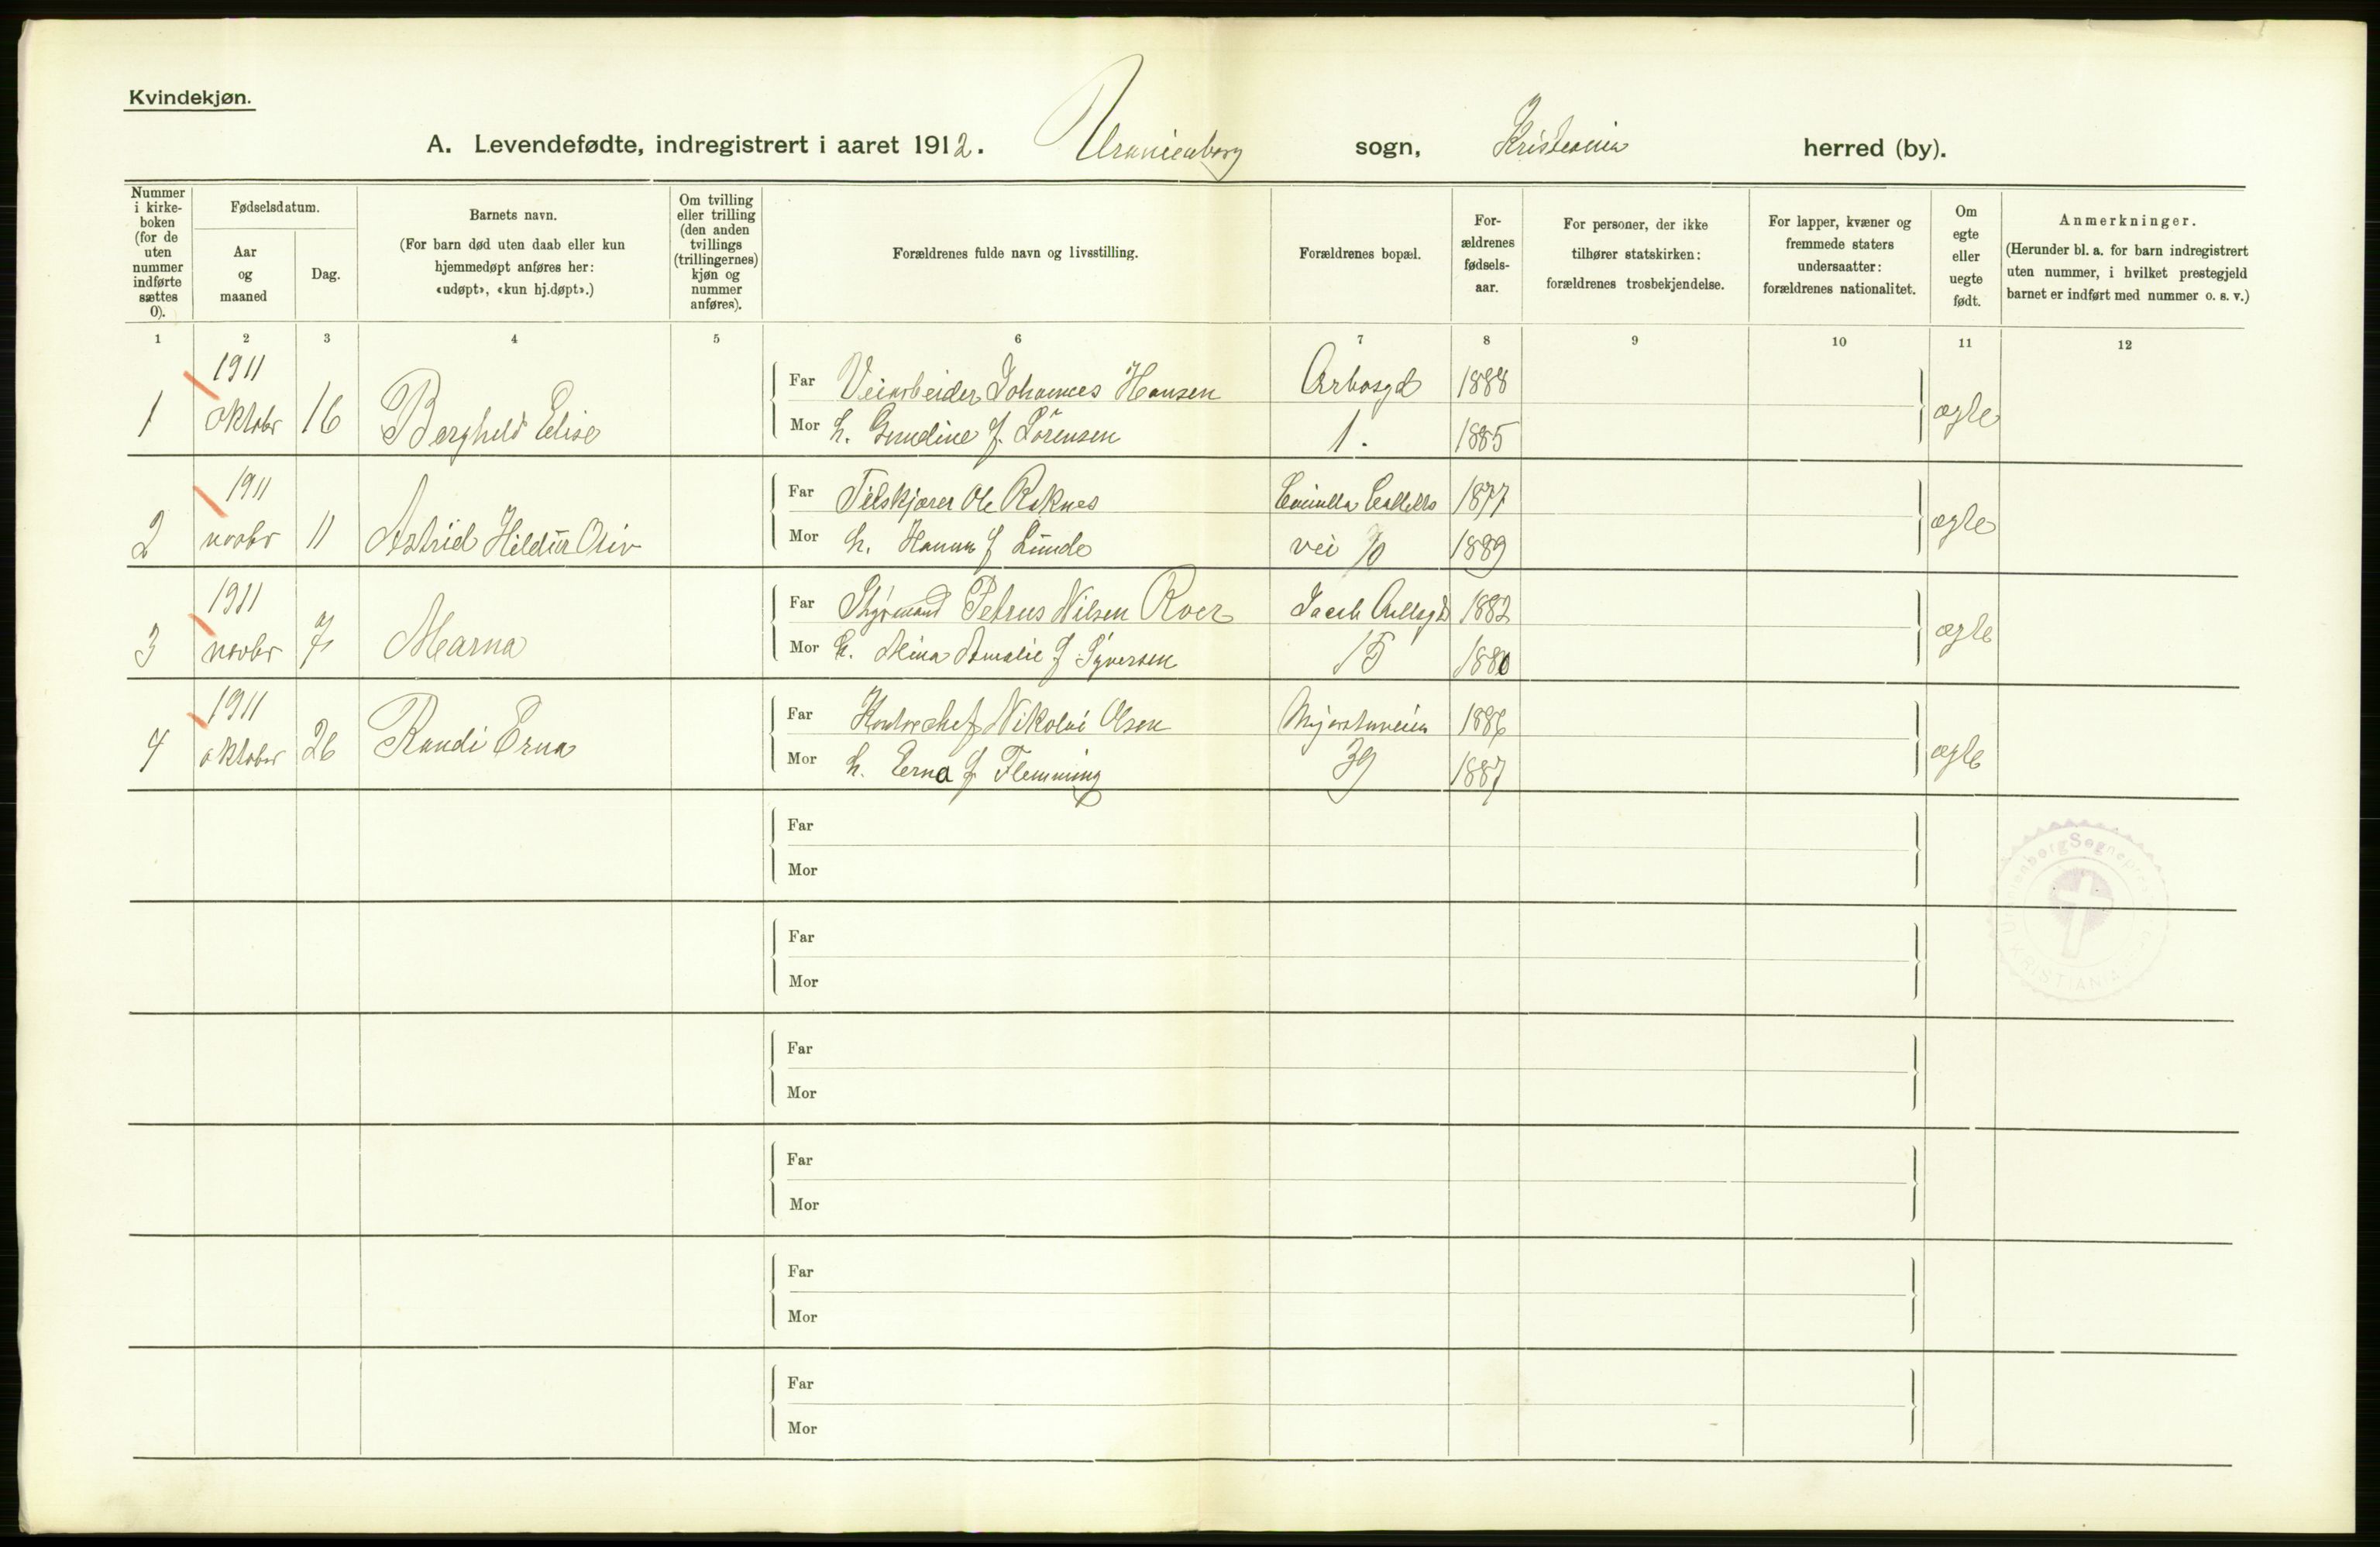 Kvindekjøn.
A. Levendefødte, indregistrert i aaret 1912. Uranienborg sogn, Kristiania herred (by).
Nummer i kirke-boken (for de uten nummer indførte sættes 0).
Fødselsdatum.
Aar og maaned
Dag.
Barnets navn.
(For barn død uten daab eller kun hjemmedøpt anføres her: «udøpt», «kun hj.døpt».)
Om tvilling eller trilling (den anden tvillings (trillingernes) kjøn og nummer anføres).
Forældrenes fulde navn og livsstilling.
Forældrenes bopæl.
For-ældrenes fødsels-aar.
For personer, der ikke tilhører statskirken: forældrenes trosbekjendelse.
For lapper, kvæner og fremmede staters undersaatter: forældrenes nationalitet.
Om egte eller uegte født.
Anmerkninger.
(Herunder bl. a. for barn indregistrert uten nummer, i hvilket prestegjeld barnet er indført med nummer o. s. v.)
1 2 3 4 5 6 7 8 9 10 11 12
1911
Far Veiarbeider Johannes Hansen Arbosgd 1888
1 oktobr 16 Borghild Elise ægte
Mor h. Gundine f. Sörensen 1. 1885
1911
Far Ole Raknes Camilla Colletts 1877
2 novbr 11 Astrid Hildur Oliv ægte
Mor h. Hanna f Lunde vei 10 1889
1911
Far Styrmand Petrus Nilsen Roer Jacob Aallsgd 1882
3 novbr 7 Marna ægte
Mor h. Mina Amalie f Syversen 15 1880
1911
Far Kontorchef Nikolai Olsen Majorstuveien 1886
4 oktober 26 Randi Erna ægte
Mor h. Erna f. Flemming 39 1887
Far
Mor
Far
Mor
Far
Mor
Far
Mor
Far
Mor
Far
Mor
KRISTIANIA